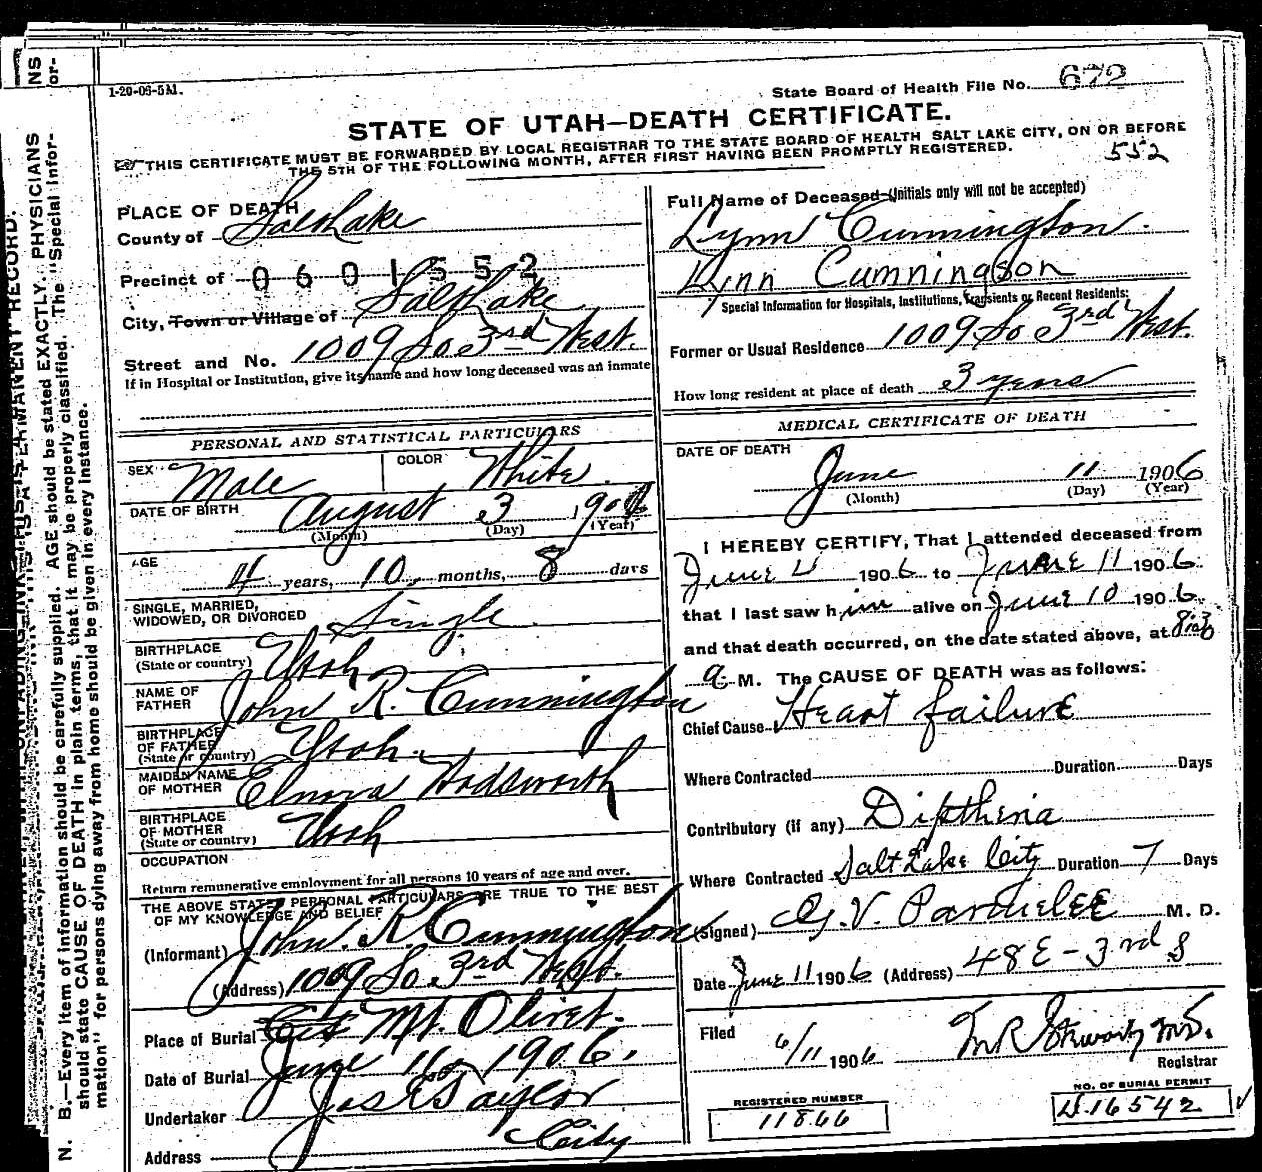 1-20-06-5M.
State Board of Health File No. 672
STATE OF UTAH—DEATH CERTIFICATE.
THIS CERTIFICATE MUST BE FORWARDED BY LOCAL REGISTRAR TO THE STATE BOARD OF HEALTH SALT LAKE CITY, ON OR BEFORE
THE 5TH OF THE FOLLOWING MONTH, AFTER FIRST HAVING BEEN PROMPTLY REGISTERED.
552
PLACE OF DEATH
County of Salt Lake
Precinct of 0601552
City, Town or Village of Salt Lake
Street and No. 1009 So 3rd West.
If in Hospital or Institution, give its name and how long deceased was an inmate
PERSONAL AND STATISTICAL PARTICULARS
SEX Male COLOR White.
DATE OF BIRTH August 3 1901
(Month) (Day) (Year)
AGE 4 years, 10 months, 8 days
SINGLE, MARRIED,
WIDOWED, OR DIVORCED Single
BIRTHPLACE
(State or country) Utah
NAME OF
FATHER John R. Cunnington
BIRTHPLACE
OF FATHER
(State or country) Utah.
MAIDEN NAME
OF MOTHER Elnora Hodsworth
BIRTHPLACE
OF MOTHER
(State or country) Utah
OCCUPATION
Return remunerative employment for all persons 10 years of age and over.
THE ABOVE STATED PERSONAL PARTICULARS ARE TRUE TO THE BEST
OF MY KNOWLEDGE AND BELIEF
(Informant) John. R. Cunnington
(Address) 1009 So. 3rd West.
Place of Burial Mt. Olivet.
Date of Burial June 11, 1906.
Undertaker Jas E Taylor
Address City
Full Name of Deceased—(Initials only will not be accepted)
Lynn Cunnington.
Lynn Cunningson
Special Information for Hospitals, Institutions, Transients or Recent Residents:
Former or Usual Residence 1009 So 3rd West.
How long resident at place of death 3 years
MEDICAL CERTIFICATE OF DEATH
DATE OF DEATH
June 11 1906
(Month) (Day) (Year)
I HEREBY CERTIFY, That I attended deceased from
June 4 1906 to June 11 1906.
that I last saw him alive on June 10 1906.
and that death occurred, on the date stated above, at
a M. The CAUSE OF DEATH was as follows:
Chief Cause Heart failure
Where Contracted Duration Days
Contributory (if any) Diptheria
Where Contracted Salt Lake City Duration 7 Days
(Signed) G. V. Parmelee M. D.
Date June 11 1906 (Address) 48 E - 3rd S
Filed 6/11 1906
Registrar
REGISTERED NUMBER
11866
NO. OF BURIAL PERMIT
16542
N. B.—Every item of information should be carefully supplied. AGE should be stated EXACTLY. PHYSICIANS
should state CAUSE OF DEATH in plain terms, that it may be properly classified. The "Special Infor-
mation" for persons dying away from home should be given in every instance.